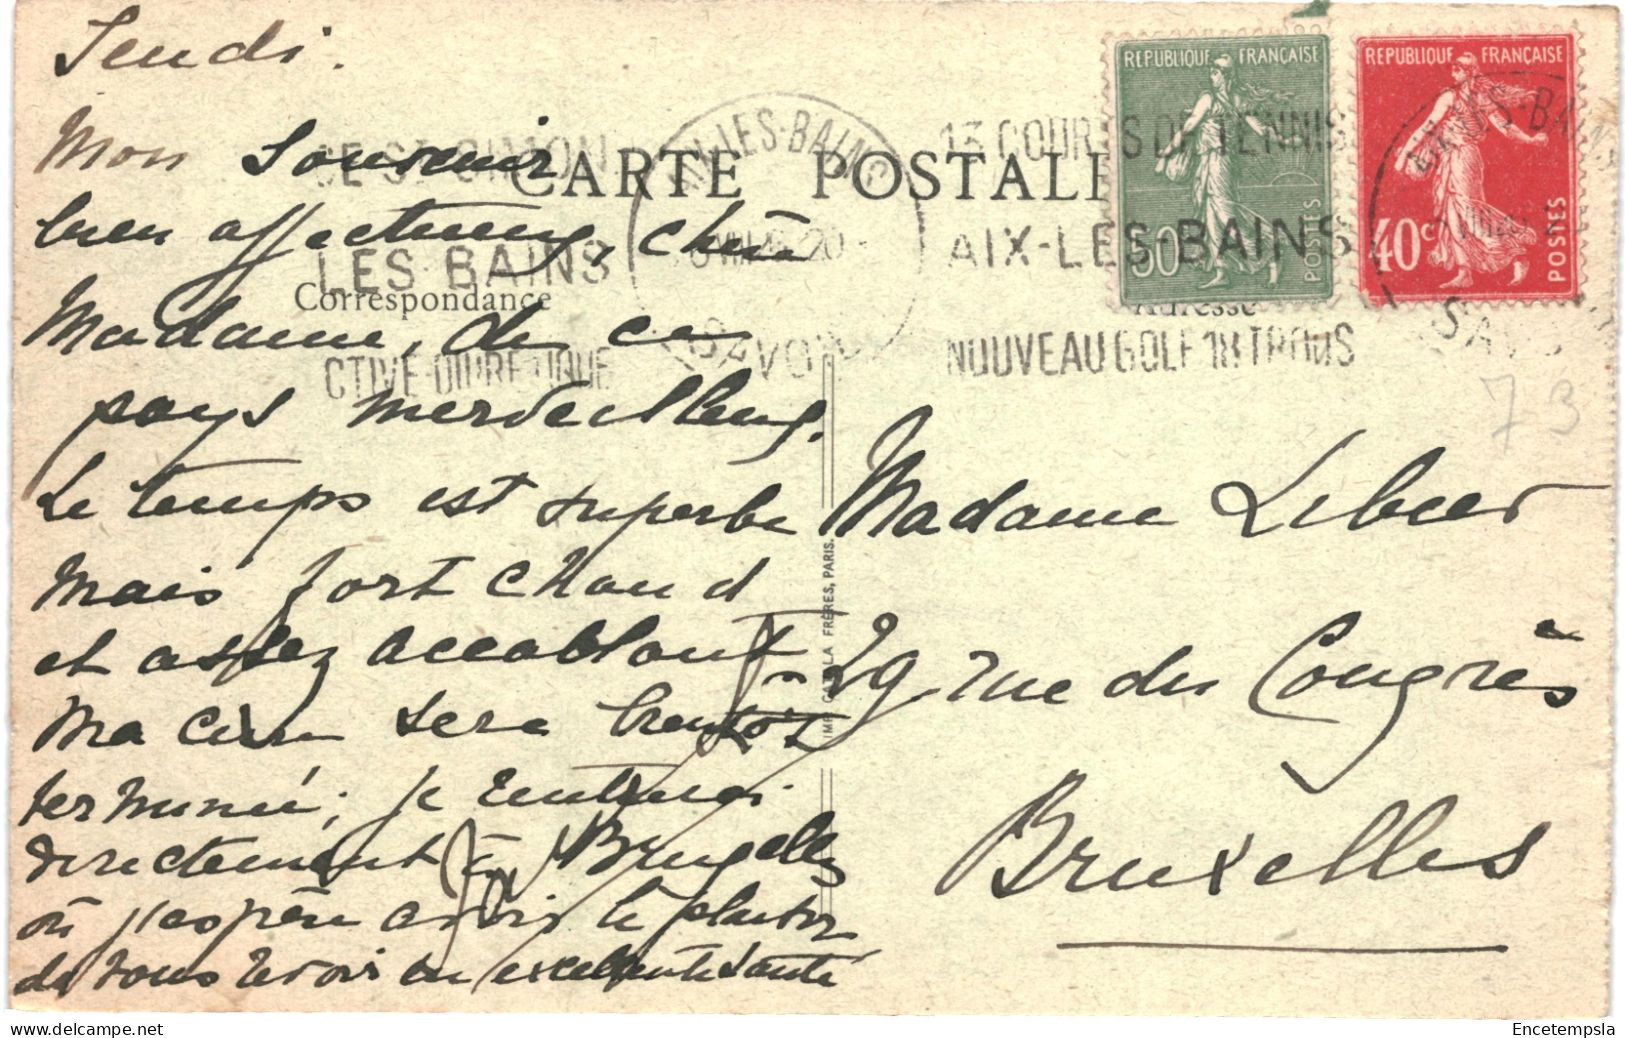 Jeudi.
Mon souvenir
bien affectueux, chère
Madame, de ce
pays merveilleux.
Le temps est superbe
mais fort chaud
et assez accablant
Ma cure sera bientôt
terminée; je rentrerai
directement à Bruxelles
où j'espère avoir le plaisir
de vous revoir en excellente santé
CARTE POSTALE
Correspondance
Adresse
LES BAINS
AIX-LES-BAINS
SAVOIE
13 COURTS DE TENNIS
AIX-LES-BAINS
NOUVEAU GOLF 18 TROUS
REPUBLIQUE FRANÇAISE
50c
POSTES
REPUBLIQUE FRANÇAISE
40c
POSTES
AIX-LES-BAINS
SAVOIE
73
Madame
29 rue du Congrès
Bruxelles
FRÈRES, PARIS.
Encetempsla